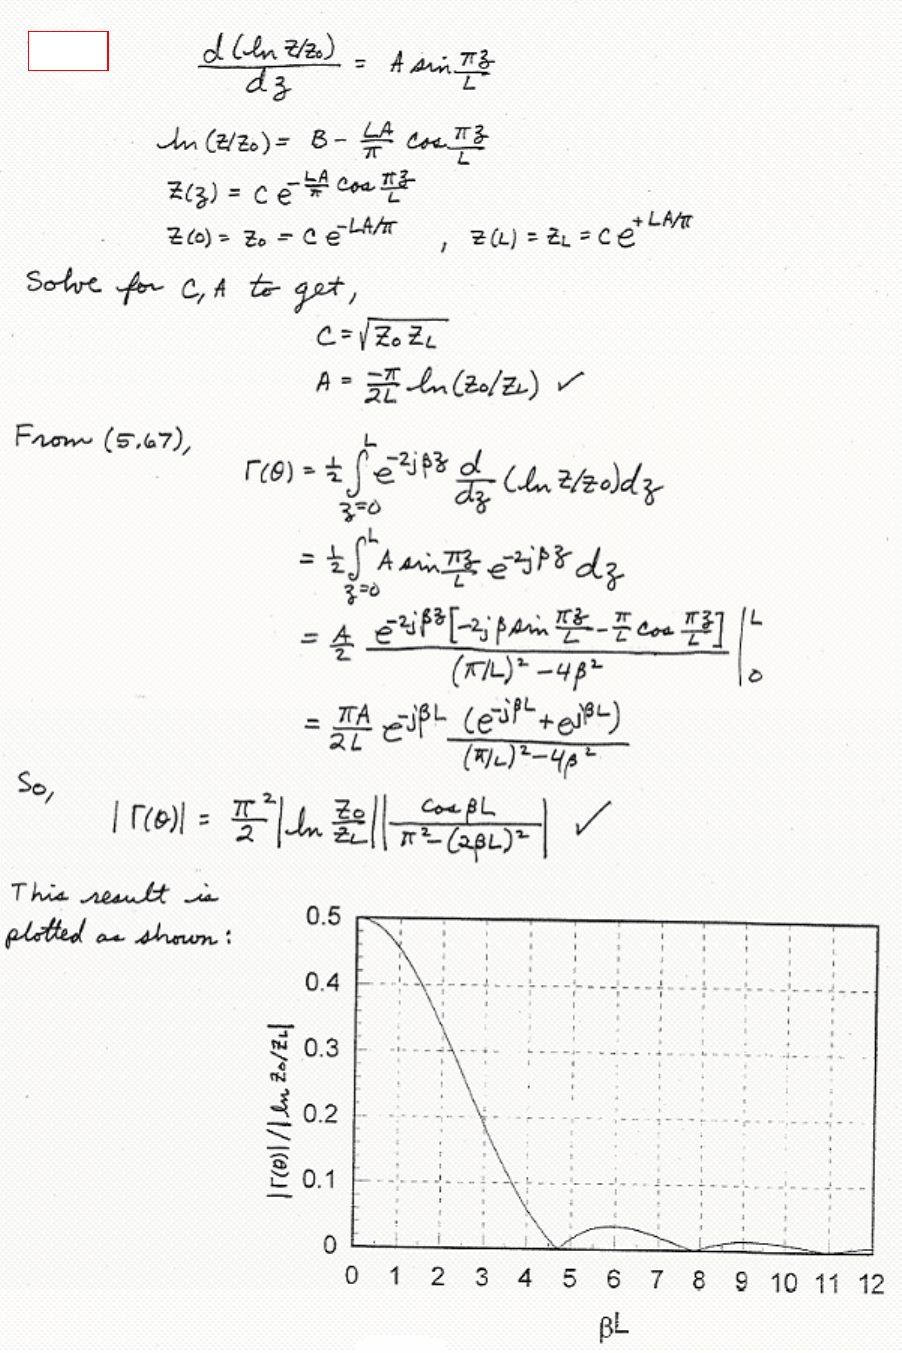 d(ln Z/Z₀)/dz = A sin πz/L
ln(Z/Z₀) = B - LA/π cos πz/L
Z(z) = C e^{-LA/π cos πz/L}
Z(0) = Z₀ = C e^{-LA/π} , Z(L) = Z_L = C e^{+LA/π}
Solve for C, A to get,
C = √(Z₀ Z_L)
A = -π/2L ln(Z₀/Z_L) ✓
From (5.67),
Γ(θ) = ½ ∫_{z=0}^{L} e^{-2jβz} d/dz (ln Z/Z₀) dz
= ½ ∫_{z=0}^{L} A sin πz/L e^{-2jβz} dz
= A/2 e^{-2jβz}[-2jβ sin πz/L - π/L cos πz/L]/((π/L)² - 4β²) |_0^L
= πA/2L e^{-jβL} (e^{-jβL} + e^{jβL})/((π/L)² - 4β²)
So,
|Γ(θ)| = π²/2 |ln Z₀/Z_L| |cos βL/(π² - (2βL)²)| ✓
This result is
plotted as shown:
0.5
0.4
0.3
0.2
0.1
0
|Γ(θ)|/|ln Z₀/Z_L|
0 1 2 3 4 5 6 7 8 9 10 11 12
βL